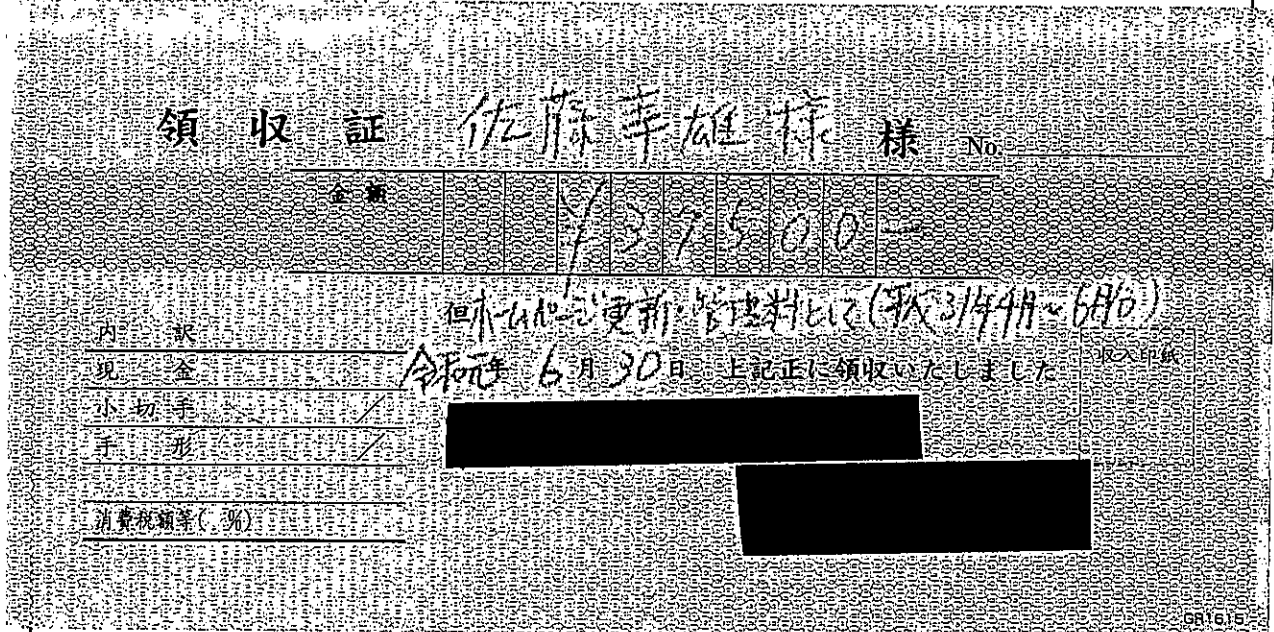 領収証 佐藤幸雄様 様 No.
金額 ¥37500-
但ホームページ更新・管理料として(平成31年4月~6月分)
令和元年 6月30日 上記正に領収いたしました
内訳
現金
小切手
手形
消費税額等( %)
収入印紙
GR1615